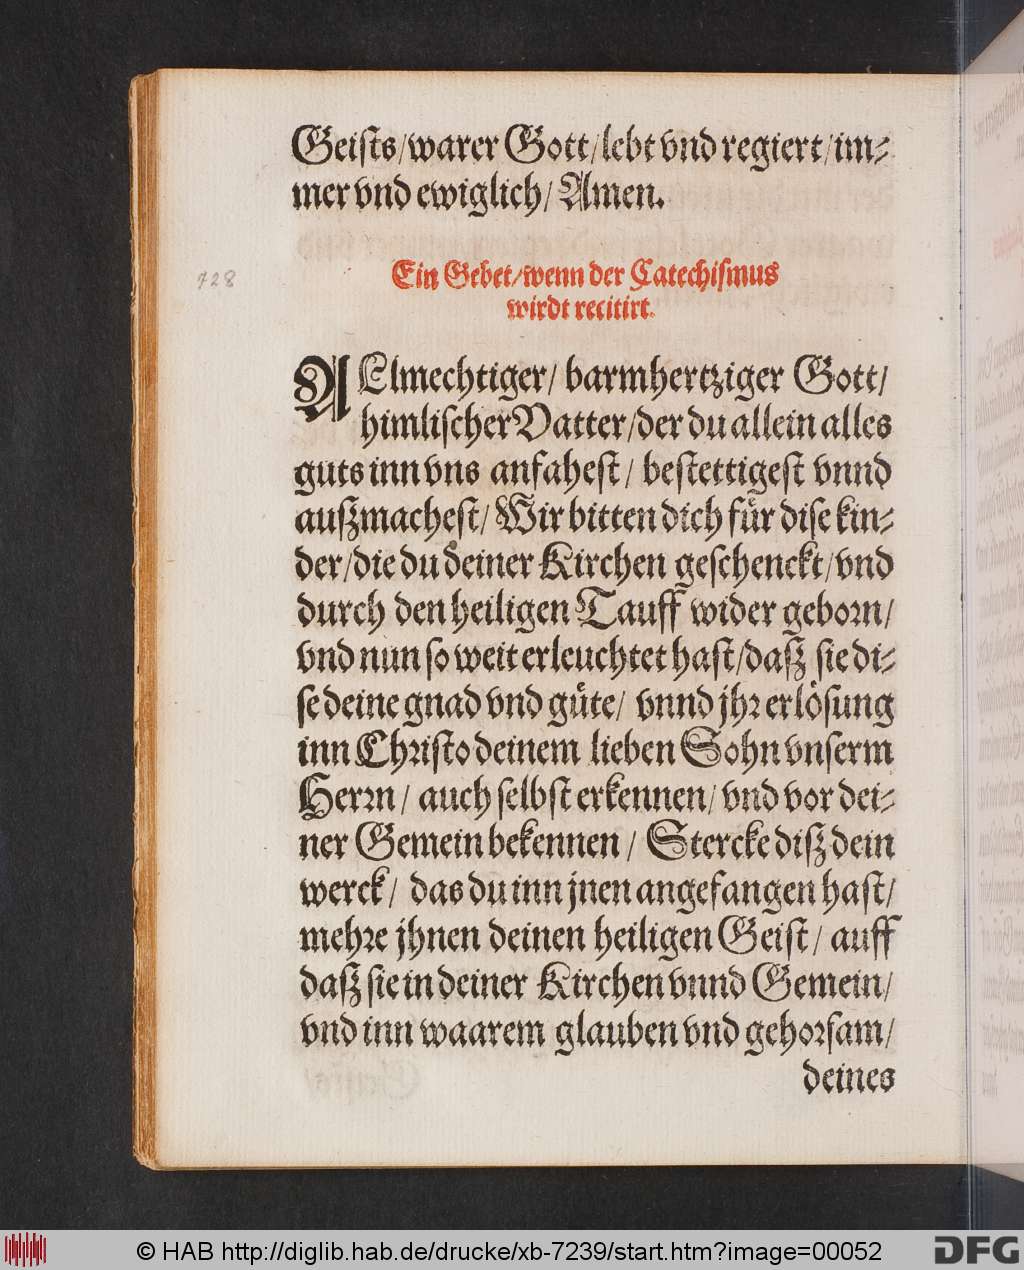 Geists/warer Gott/lebt vnd regiert/im⸗
mer vnd ewiglich/ Amen.
728
Ein Gebet/wenn der Catechiſmus
wirdt recitirt.
ALlmechtiger/ barmhertziger Gott/
himliſcher Vatter/der du allein alles
guts inn vns anfaheſt/ beſtettigeſt vnnd
auſzmacheſt/ Wir bitten dich fuͤr diſe kin⸗
der/die du deiner Kirchen geſchenckt/vnd
durch den heiligen Tauff wider geboꝛn/
vnd nun ſo weit erleuchtet haſt/daſz ſie di⸗
ſe deine gnad vnd guͤte/ vnnd jhꝛ erloͤſung
inn Chꝛiſto deinem lieben Sohn vnſerm
Herꝛn/ auch ſelbſt erkennen/ vnd vor dei⸗
ner Gemein bekennen/ Stercke diſz dein
werck/ das du inn jnen angefangen haſt/
mehꝛe jhnen deinen heiligen Geiſt/ auff
daſz ſie in deiner Kirchen vnnd Gemein/
vnd inn waarem glauben vnd gehoꝛſam/
deines
© HAB http://diglib.hab.de/drucke/xb-7239/start.htm?image=00052
DFG